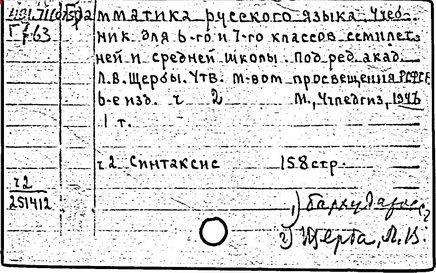 Грамматика русского языка. Учеб-
Г763 ник для 6-го и 7-го классов семилет-
ней и средней школы. Под ред. акад.
Л.В. Щербы. Утв. М-вом просвещения РСФСР.
6-е изд. ч 2 М., Учпедгиз, 1946
1 т.
ч.2 Синтаксис 158 стр.
ч2
251412
1) Бархударов,
2) Щерба, Л.В.